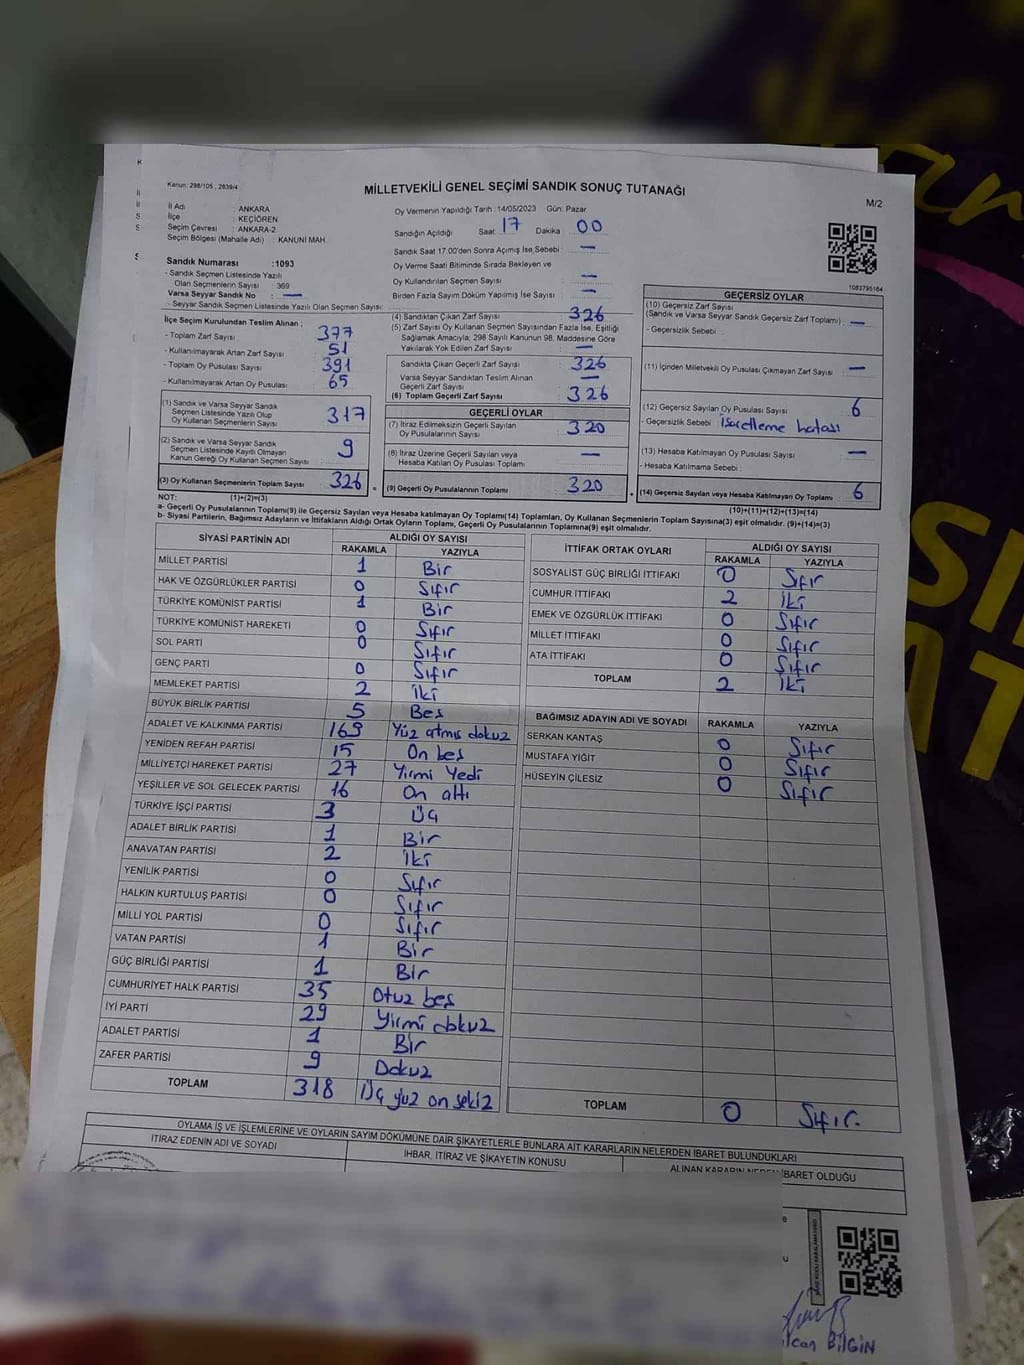 MİLLETVEKİLİ GENEL SEÇİMİ SANDIK SONUÇ TUTANAĞI
Kanun: 298/105 , 2839/4
M/2
İl Adı : ANKARA
İlçe : KEÇİÖREN
Seçim Çevresi : ANKARA-2
Seçim Bölgesi (Mahalle Adı) : KANUNİ MAH
Sandık Numarası :1093
- Sandık Seçmen Listesinde Yazılı
Olan Seçmenlerin Sayısı : 369
Varsa Seyyar Sandık No : —
- Seyyar Sandık Seçmen Listesinde Yazılı Olan Seçmen Sayısı:
Oy Vermenin Yapıldığı Tarih : 14/05/2023 Gün: Pazar
Sandığın Açıldığı Saat 17 Dakika 00
Sandık Saat 17.00'den Sonra Açımış İse Sebebi : —
Oy Verme Saati Bitiminde Sırada Bekleyen ve
Oy Kullandırılan Seçmen Sayısı : —
Birden Fazla Sayım Döküm Yapılmış İse Sayısı : —
1083795164
İlçe Seçim Kurulundan Teslim Alınan ;
- Toplam Zarf Sayısı : 377
- Kullanılmayarak Artan Zarf Sayısı : 51
- Toplam Oy Pusulası Sayısı : 391
- Kullanılmayarak Artan Oy Pusulası : 65
(1) Sandık ve Varsa Seyyar Sandık
Seçmen Listesinde Yazılı Olup
Oy Kullanan Seçmenlerin Sayısı : 317
(2) Sandık ve Varsa Seyyar Sandık
Seçmen Listesinde Kayıtlı Olmayan
Kanun Gereği Oy Kullanan Seçmen Sayısı : 9
(3) Oy Kullanan Seçmenlerin Toplam Sayısı : 326 =
(4) Sandıktan Çıkan Zarf Sayısı : 326
(5) Zarf Sayısı Oy Kullanan Seçmen Sayısından Fazla İse, Eşitliği
Sağlamak Amacıyla; 298 Sayılı Kanunun 98. Maddesine Göre
Yakılarak Yok Edilen Zarf Sayısı : —
Sandıkta Çıkan Geçerli Zarf Sayısı : 326
Varsa Seyyar Sandıktan Teslim Alınan
Geçerli Zarf Sayısı : —
(6) Toplam Geçerli Zarf Sayısı : 326
GEÇERLİ OYLAR
(7) İtiraz Edilmeksizin Geçerli Sayılan
Oy Pusulalarının Sayısı : 320
(8) İtiraz Üzerine Geçerli Sayılan veya
Hesaba Katılan Oy Pusulası Toplamı : —
(9) Geçerli Oy Pusulalarının Toplamı : 320 +
GEÇERSİZ OYLAR
(10) Geçersiz Zarf Sayısı
(Sandık ve Varsa Seyyar Sandık Geçersiz Zarf Toplamı) : —
- Geçersizlik Sebebi :
(11) İçinden Milletvekili Oy Pusulası Çıkmayan Zarf Sayısı : —
(12) Geçersiz Sayılan Oy Pusulası Sayısı : 6
- Geçersizlik Sebebi : İsaretleme hatası
(13) Hesaba Katılmayan Oy Pusulası Sayısı : —
- Hesaba Katılmama Sebebi :
(14) Geçersiz Sayılan veya Hesaba Katılmayan Oy Toplamı : 6
NOT: (1)+(2)=(3)
(10)+(11)+(12)+(13)=(14)
a- Geçerli Oy Pusulalarının Toplamı(9) ile Geçersiz Sayılan veya Hesaba Katılmayan Oy Toplamı(14) Toplamları, Oy Kullanan Seçmenlerin Toplam Sayısına(3) eşit olmalıdır. (9)+(14)=(3)
b- Siyasi Partilerin, Bağımsız Adayların ve İttifakların Aldığı Ortak Oyların Toplamı, Geçerli Oy Pusulalarının Toplamına(9) eşit olmalıdır.
SİYASİ PARTİNİN ADI ALDIĞI OY SAYISI
RAKAMLA YAZIYLA
MİLLET PARTİSİ 1 Bir
HAK VE ÖZGÜRLÜKLER PARTİSİ 0 Sıfır
TÜRKİYE KOMÜNİST PARTİSİ 1 Bir
TÜRKİYE KOMÜNİST HAREKETİ 0 Sıfır
SOL PARTİ 0 Sıfır
GENÇ PARTİ 0 Sıfır
MEMLEKET PARTİSİ 2 İki
BÜYÜK BİRLİK PARTİSİ 5 Bes
ADALET VE KALKINMA PARTİSİ 169 Yüz atmıs dokuz
YENİDEN REFAH PARTİSİ 15 On bes
MİLLİYETÇİ HAREKET PARTİSİ 27 Yirmi Yedi
YEŞİLLER VE SOL GELECEK PARTİSİ 16 On altı
TÜRKİYE İŞÇİ PARTİSİ 3 Üç
ADALET BİRLİK PARTİSİ 1 Bir
ANAVATAN PARTİSİ 2 İki
YENİLİK PARTİSİ 0 Sıfır
HALKIN KURTULUŞ PARTİSİ 0 Sıfır
MİLLİ YOL PARTİSİ 0 Sıfır
VATAN PARTİSİ 1 Bir
GÜÇ BİRLİĞİ PARTİSİ 1 Bir
CUMHURİYET HALK PARTİSİ 35 Otuz bes
İYİ PARTİ 29 Yirmi dokuz
ADALET PARTİSİ 1 Bir
ZAFER PARTİSİ 9 Dokuz
TOPLAM 318 Üç yüz on sekiz
İTTİFAK ORTAK OYLARI ALDIĞI OY SAYISI
RAKAMLA YAZIYLA
SOSYALİST GÜÇ BİRLİĞİ İTTİFAKI 0 Sıfır
CUMHUR İTTİFAKI 2 İki
EMEK VE ÖZGÜRLÜK İTTİFAKI 0 Sıfır
MİLLET İTTİFAKI 0 Sıfır
ATA İTTİFAKI 0 Sıfır
TOPLAM 2 İki
BAĞIMSIZ ADAYIN ADI VE SOYADI RAKAMLA YAZIYLA
SERKAN KANTAŞ 0 Sıfır
MUSTAFA YİĞİT 0 Sıfır
HÜSEYİN ÇİLESİZ 0 Sıfır
TOPLAM 0 Sıfır.
OYLAMA İŞ VE İŞLEMLERİNE VE OYLARIN SAYIM DÖKÜMÜNE DAİR ŞİKAYETLERLE BUNLARA AİT KARARLARIN NELERDEN İBARET BULUNDUKLARI
İTİRAZ EDENİN ADI VE SOYADI İHBAR, İTİRAZ VE ŞİKAYETİN KONUSU ALINAN KARARIN NEDEN İBARET OLDUĞU
BİLGİN